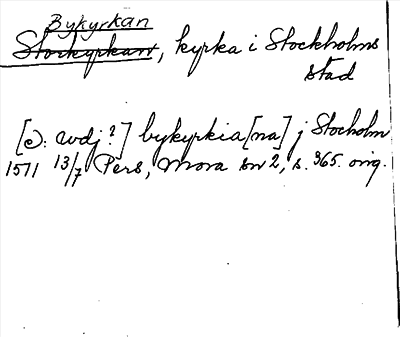 Bykyrkan
Storkyrkan, kyrka i Stockholms
stad
[d: wdj?] bykyrkia[na] j Stocholm
1571 13/7 Pers, Mora sn 2, s. 365. orig.